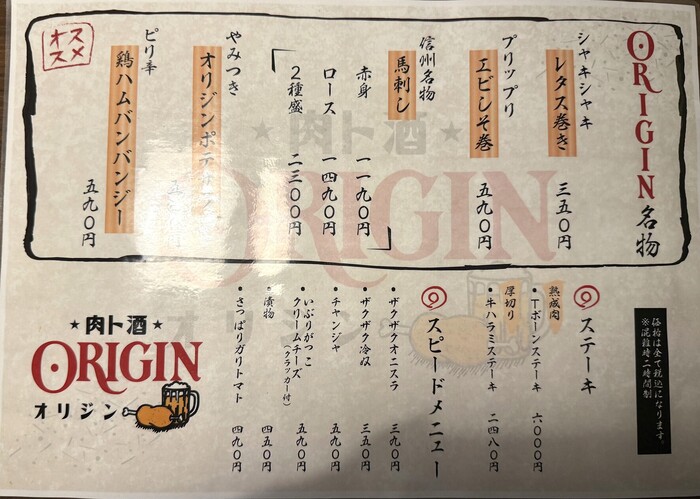 ORIGIN名物
シャキシャキ
レタス巻き 三五〇円
プリップリ
エビしそ巻 五九〇円
信州名物
馬刺し
赤身 一一九〇円
ロース 一四九〇円
2種盛 二三〇〇円
やみつき
オリジンポテサラ
ピリ辛
鶏ハムバンバンジー 五九〇円
オススメ
★肉ト酒★
ORIGIN
価格は全て税込になります。
※混雑時二時間制
◎ステーキ
熟成肉
•Tボーンステーキ 六〇〇〇円
厚切り
•牛ハラミステーキ 二四八〇円
◎スピードメニュー
•ザクザクオニスラ 三九〇円
•ザクザク冷奴 三五〇円
•チャンジャ 五九〇円
•いぶりがっこ
クリームチーズ(クラッカー付) 五九〇円
•漬物 四五〇円
•さっぱりガリトマト 四九〇円
★肉ト酒★
ORIGIN
オリジン